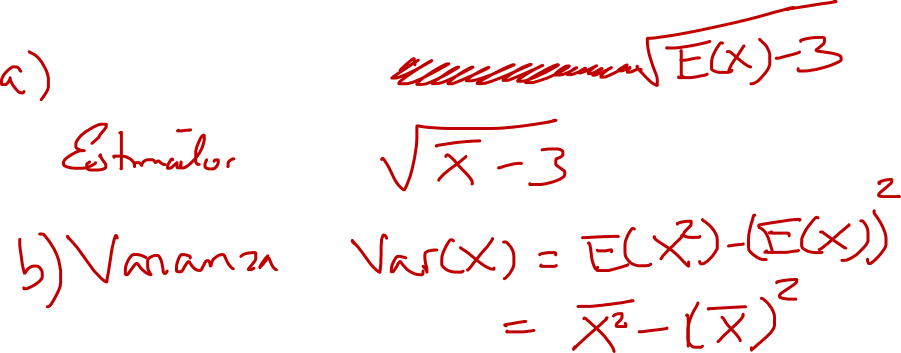 a) √(E(X)-3)
Estimador √(x̄ - 3)
b) Varianza Var(X) = E(X²)-(E(X))²
= \overline{X²} - (x̄)²